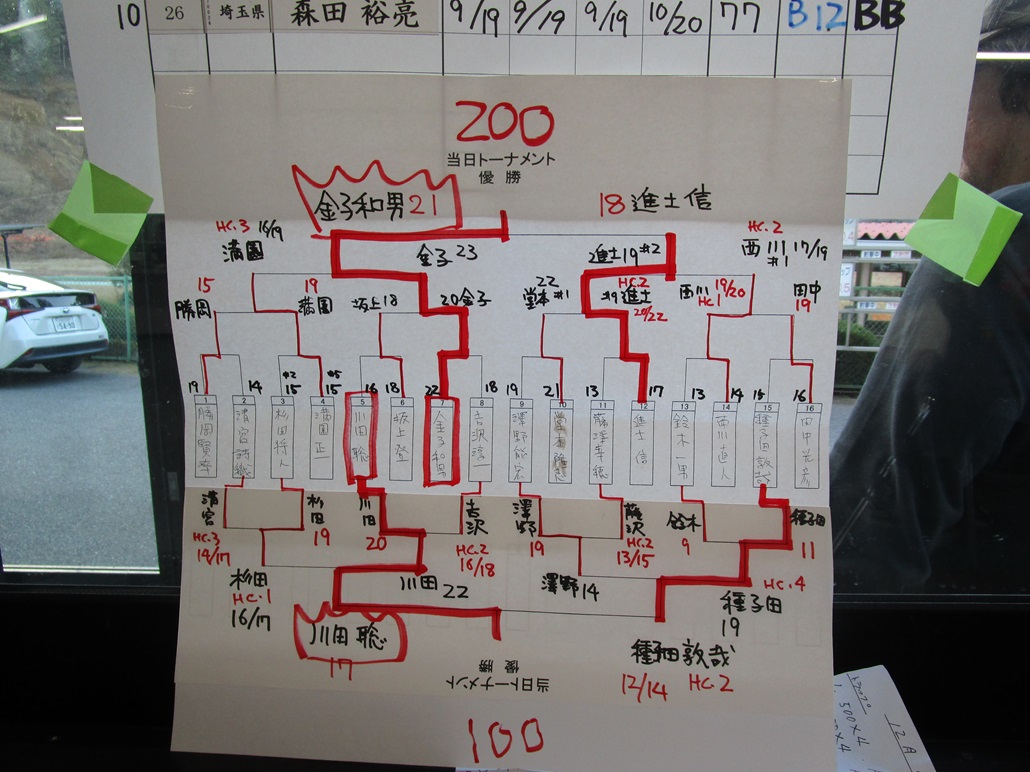 10 26 埼玉県 森田 裕亮 9/19 9/19 9/19 10/20 77 B12 BB
200
当日トーナメント
優勝
金子和男 21
18 進士信
HC.3 16/19
満園
金子 23
進士19 #2
HC.2
西川 17/19
#1
15
勝岡
19
満園
坂上 18
20 金子
22
堂本 #1
HC.2
#9 進士
20/22
西川 19/20
HC.1
田中
19
19 14 #2 15 #5 15 16 18 22 18 19 21 13 17 13 14 15 16
1 2 3 4 5 6 7 8 9 10 11 12 13 14 15 16
勝岡賢幸
杉田将人
満園正一
川田聡
坂上登
金子和男
吉沢淳一
進士信
鈴木一男
西川直人
種子田敦哉
溝宮
HC.3
14/17
杉田
19
川田
20
吉沢
HC.2
16/18
澤野
19
藤沢
HC.2
13/15
鈴木
9
種子田
11
杉田
HC.1
16/17
川田 22
澤野 14
HC.4
種子田
19
川田 聡
17
種子田敦哉
12/14 HC.2
当日トーナメント
優勝
100
12月
500×4